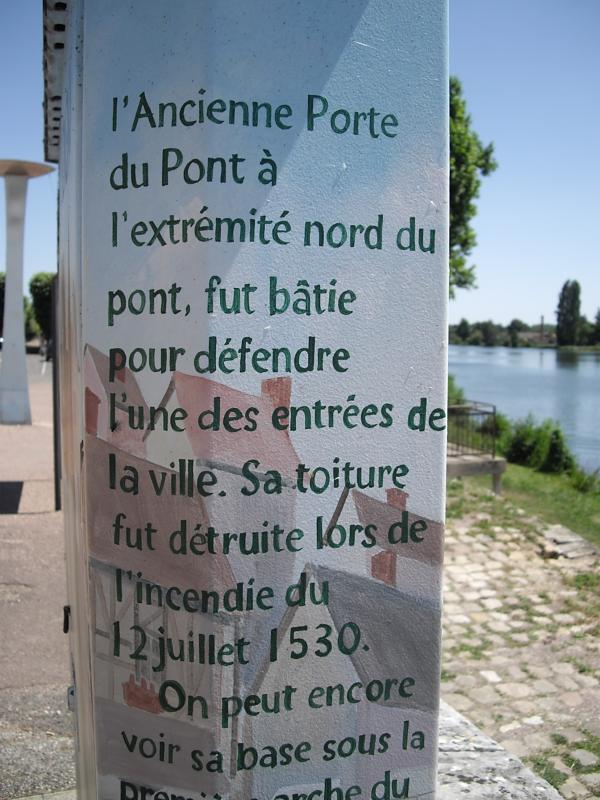 l'Ancienne Porte
du Pont à
l'extrémité nord du
pont, fut bâtie
pour défendre
l'une des entrées de
la ville. Sa toiture
fut détruite lors de
l'incendie du
12 juillet 1530.
On peut encore
voir sa base sous la
première arche du